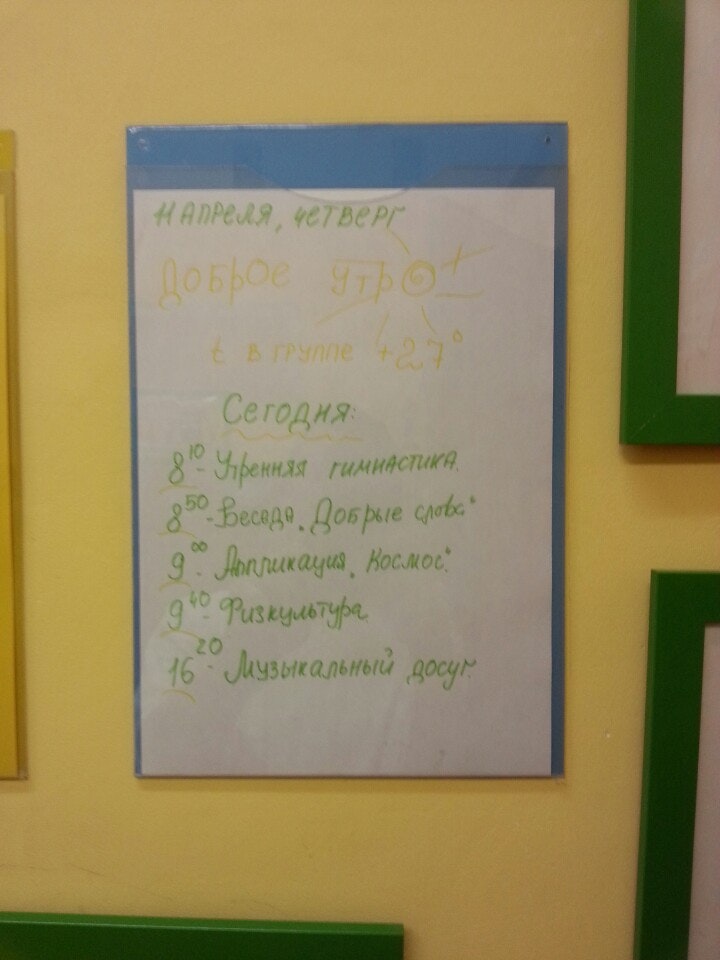 11 АПРЕЛЯ, ЧЕТВЕРГ
ДОБРОЕ УТРО
t В ГРУППЕ +27°
Сегодня:
8¹⁰ - Утренняя гимнастика.
8⁵⁰ - Беседа „Добрые слова"
9⁰⁰ - Аппликация „Космос".
9⁴⁰ - Физкультура
16²⁰ - Музыкальный досуг.